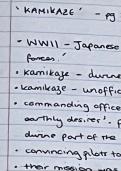 'KAMIKAZE' - pg
- WWII - Japanese
forces.'
• kamikaze - divine
• kamikaze - unoffic
• commanding office
earthly desires'. P
divine part of the
• convincing pilots to
• their mission was